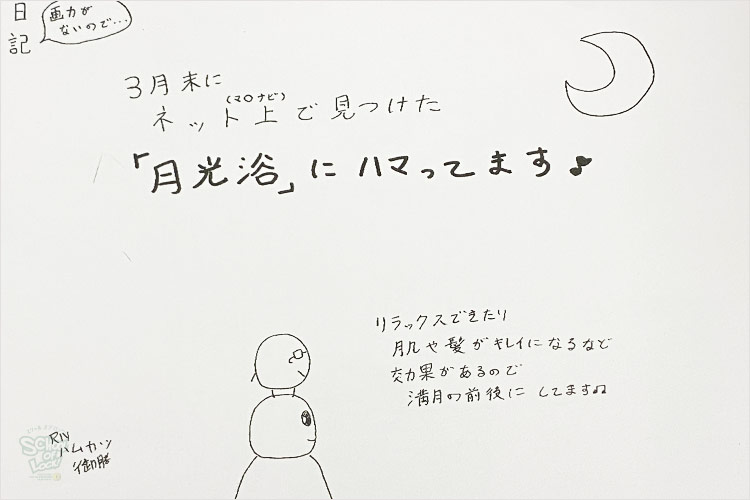 日記
画力が
ないので…
3月末に
(マロナビ)
ネット上で見つけた
「月光浴」にハマってます♪
リラックスできたり
肌や髪がキレイになるなど
効果があるので
満月の前後にしてますぬ
RN
ハムカツ
御膳